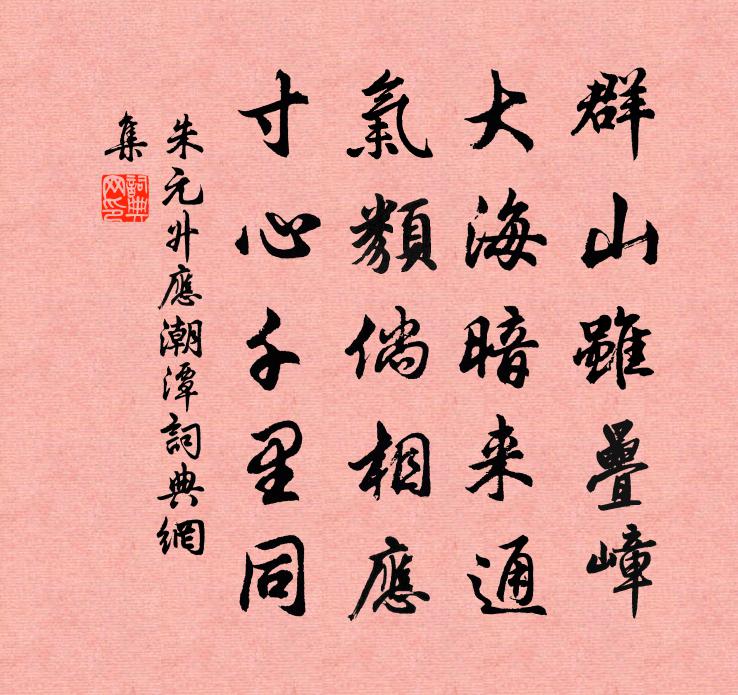 群山雖疊嶂
大海暗来通
氣類倘相應
寸心千里同
朱元升應潮潭詞典網
集
詞典网印